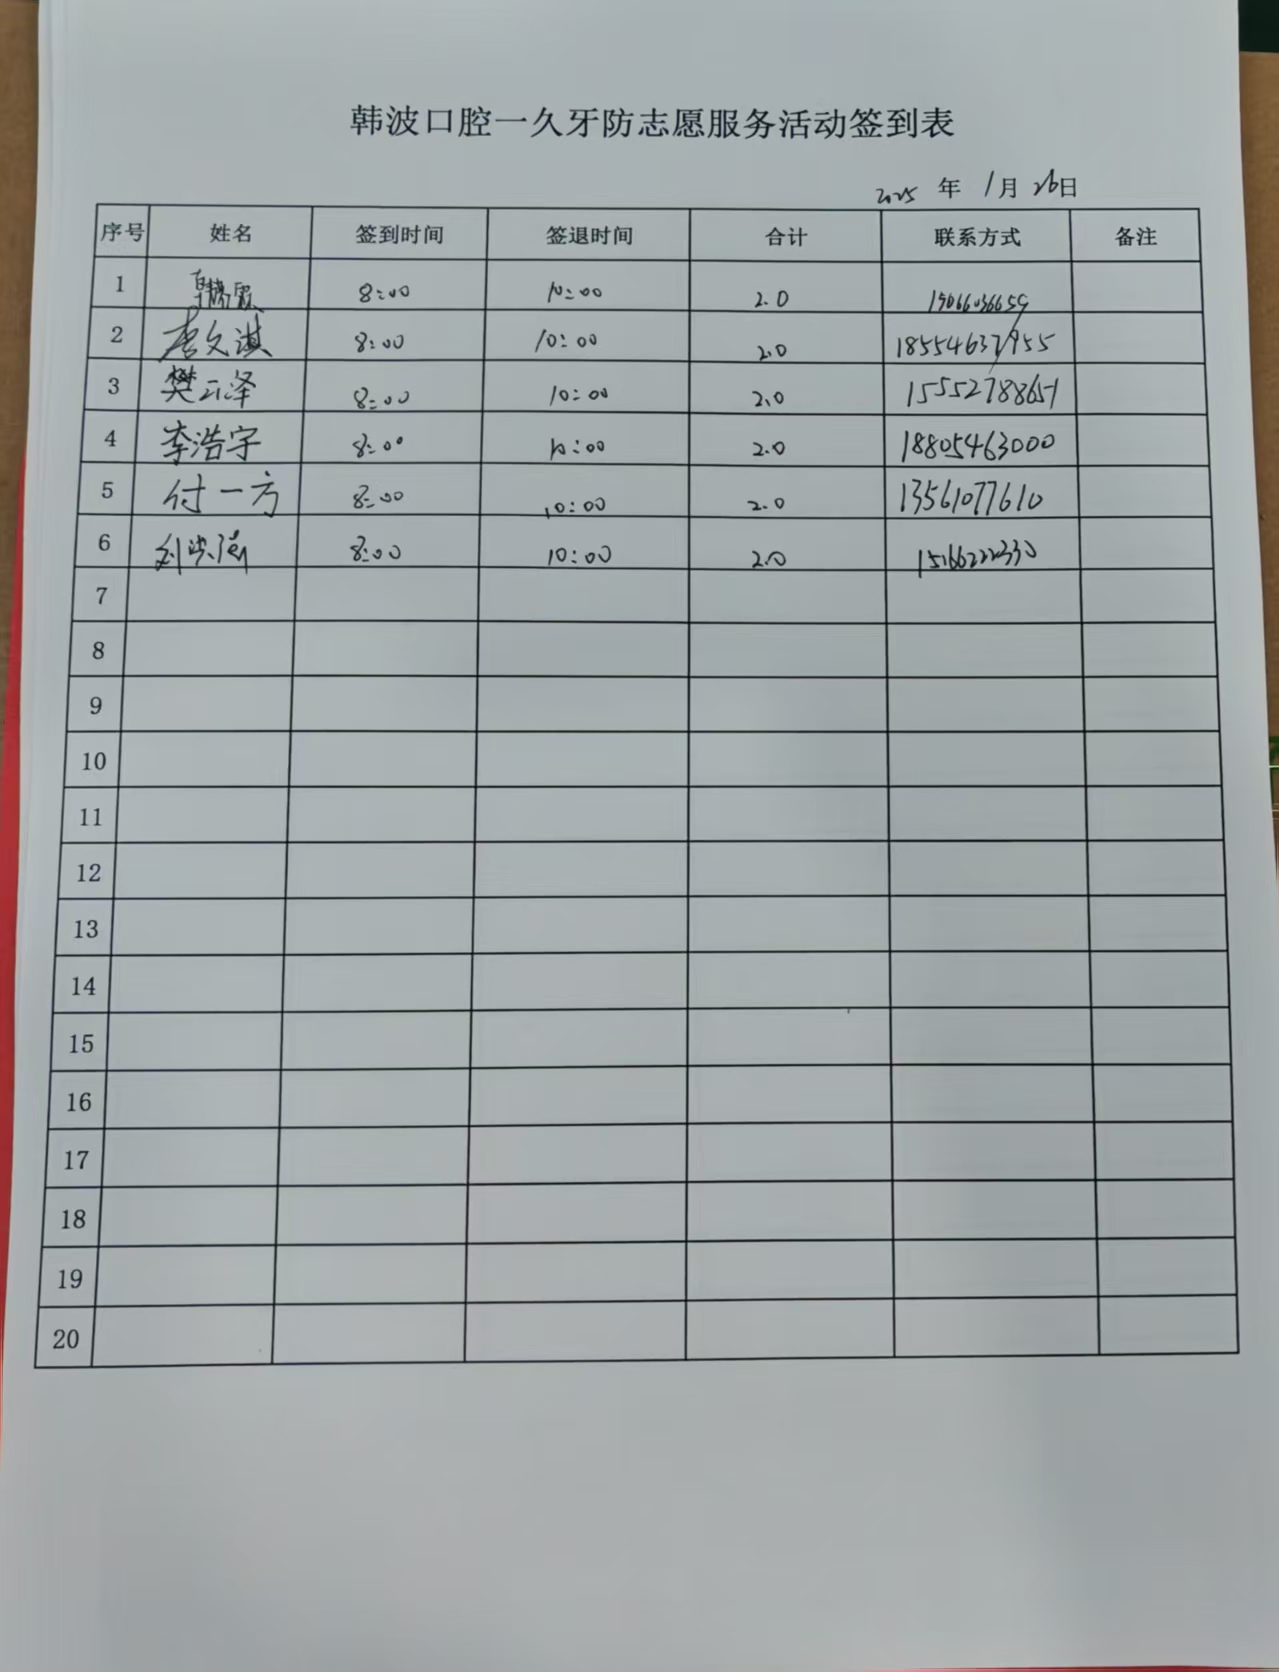 韩波口腔一久牙防志愿服务活动签到表
2025 年 1月 26日
序号 姓名 签到时间 签退时间 合计 联系方式 备注
1 8:00 10:00 2.0
2 唐文淇 8:00 10:00 2.0
3 樊云泽 8:00 10:00 2.0 15552788651
4 李浩宇 8:00 10:00 2.0 18805463000
5 付一方 8:00 10:00 2.0 13561077610
6 8:00 10:00 2.0 15166222330
7
8
9
10
11
12
13
14
15
16
17
18
19
20